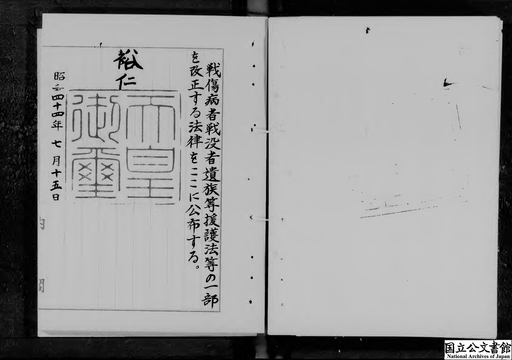 戦傷病者戦没者遺族等援護法等の一部
を改正する法律をここに公布する。
裕仁
天皇
御璽
昭和四十四年七月十五日
国立公文書館
National Archives of Japan